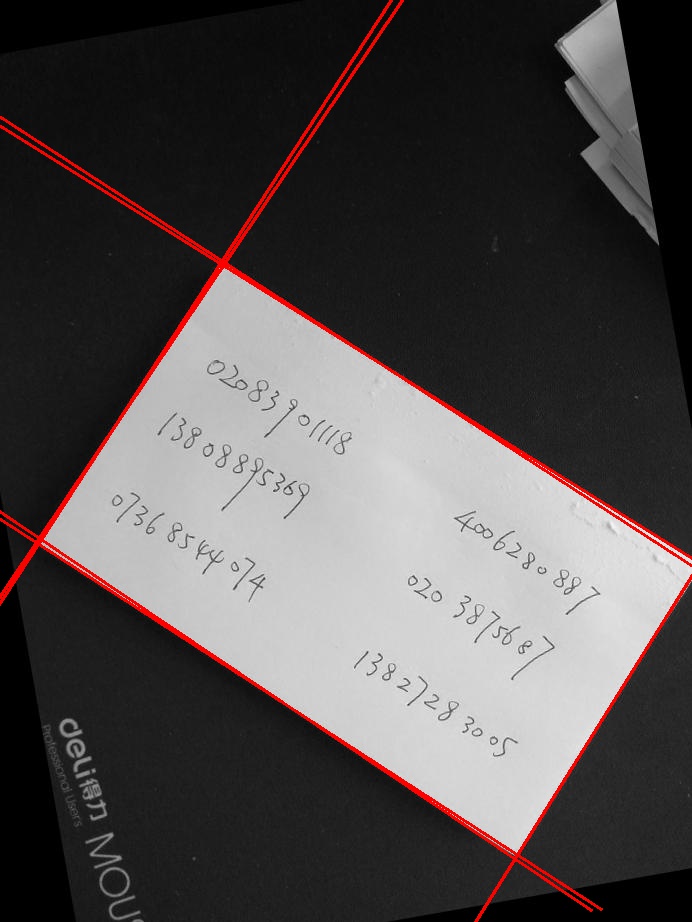 02083901118
13808895369
0736 8544 074
4006280887
020 3875687
13827283005
deli得力
Professional Users
MOUS